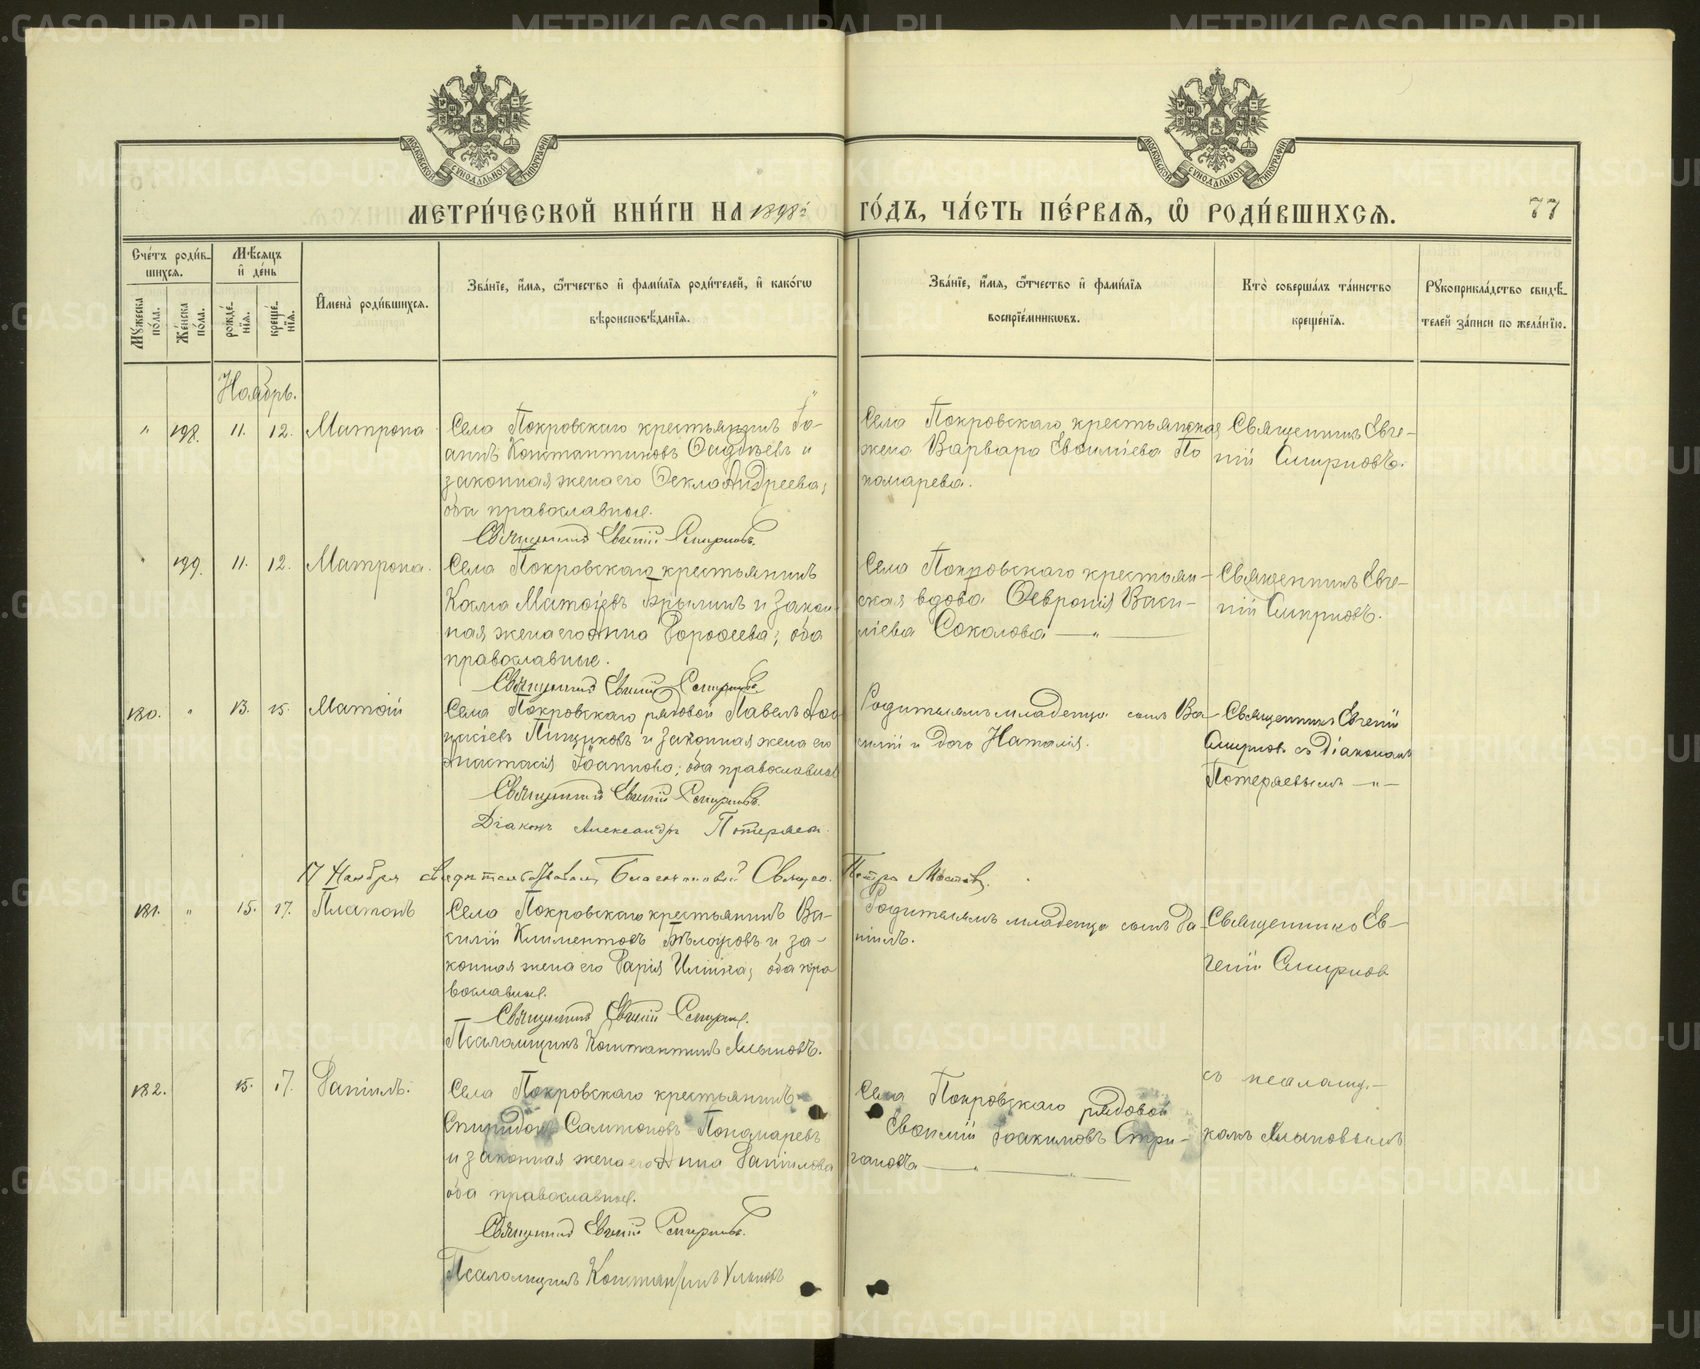 МОСКОВСКОЙ СѴНОДАЛЬНОЙ ТИПОГРАФІИ
МОСКОВСКОЙ СѴНОДАЛЬНОЙ ТИПОГРАФІИ
МЕТРИ́ЧЕСКОЙ КНИ́ГИ НА 1898й ГО́ДЪ, ЧА́СТЬ ПЕ́РВАѦ, Ѡ҆ РОДИ́ВШИХСѦ.
77
Сче́тъ роди́в-
шихсѧ.
Мѣ́сѧцъ
и҆ де́нь
Мꙋ́жеска по́ла.
Же́нска по́ла.
рожде́нїѧ.
креще́нїѧ.
И҆мена̀ роди́вшихсѧ.
Зва́нїе, и҆́мѧ, ѻ҆́тчество и҆ фами́лїѧ роди́телей, и҆ како́гѡ
вѣроисповѣ́данїѧ.
Зва́нїе, и҆́мѧ, ѻ҆́тчество и҆ фами́лїѧ
воспрїе́мникѡвъ.
Кто̀ соверша́лъ та́инство
креще́нїѧ.
Рꙋкоприкла́дство свидѣ́-
телей за́писи по жела́нїю.
Ноябрь.
" 198. 11. 12. Матрона
Села Покровскаго крестьянинъ Іо-
аннъ Константиновъ и
законная жена его Ѳекла Андреева;
оба православные.
Священникъ Евгеній Смирновъ.
Села Покровскаго крестьянская
жена Варвара Евѳиміева По
номарева.
Священникъ Евге-
ній Смирновъ.
" 199. 11. 12. Матрона.
Села Покровскаго крестьянинъ
Косма Матѳіевъ и закон-
ная жена его Анна Дороѳеева; оба
православные.
Священникъ Евгеній Смирновъ
Села Покровскаго крестьян-
ская вдова Ѳевронія Васи-
ліева Соколова — " —
Священникъ Евге-
ній Смирновъ.
180. " 13. 15. Матѳій
Села Покровскаго рядовой Павелъ
Пищиковъ и законная жена его
Анастасія Іоаннова; оба православные
Священникъ Евгеній Смирновъ.
Діаконъ Александръ Потеряевъ.
Родителямъ младенца сынъ Ва-
силій и дочь Наталія.
Священникъ Евгеній
Смирновъ съ Діакономъ
Потеряевымъ — " —
17 Ноября свидѣтельствовалъ Благочинный Священ. Петръ
181. " 15. 17. Платонъ
Села Покровскаго крестьянинъ Ва-
силій Климентовъ и за-
конная жена его Дарія Ильина; оба пра
вославные.
Священникъ Евгеній Смирновъ.
Псаломщикъ Константинъ Ильиновъ.
Родителямъ младенца сынъ Да-
ніилъ.
Священникъ Ев-
геній Смирновъ
182. 15. 17. Даніилъ.
Села Покровскаго крестьянинъ
Спиридонъ Сампсоновъ Пономаревъ
и законная жена его Анна Даніилова
оба православные.
Священникъ Евгеній Смирновъ.
Псаломщикъ Константинъ
Села Покровскаго рядовой
Евѳимій Іоакимовъ Стри-
гановъ — " —
съ псаломщ-
METRIKI.GASO-URAL.RU